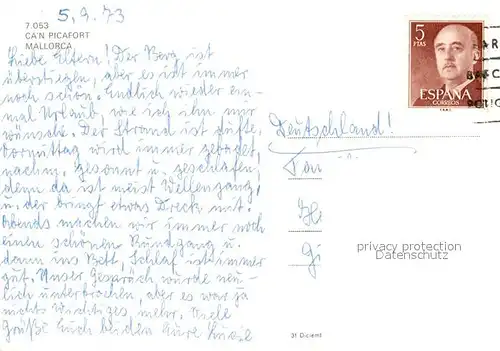 5.9.73
7.053
CA'N PICAFORT
MALLORCA
Liebe Eltern! Der Berg ist
überstiegen, aber es ist immer
noch schön. Endlich wieder ein-
mal Urlaub, wie ich ihn mir
wünsche. Der Strand ist dufte,
vormittag wird immer gebadet,
nachm. gesonnt u. geschlafen,
denn da ist meist Wellengang,
u. der bringt etwas Dreck mit.
Abends machen wir immer noch
einen schönen Rundgang u.
dann ins Bett, Schlaf ist immer
gut. Unser Gespräch wurde neu-
lich unterbrochen, aber es war ja
nichts Wichtiges mehr. Viele
Grüße Euch beiden Eure
5
PTAS
ESPAÑA
CORREOS
Deutschland!
privacy protection
Datenschutz